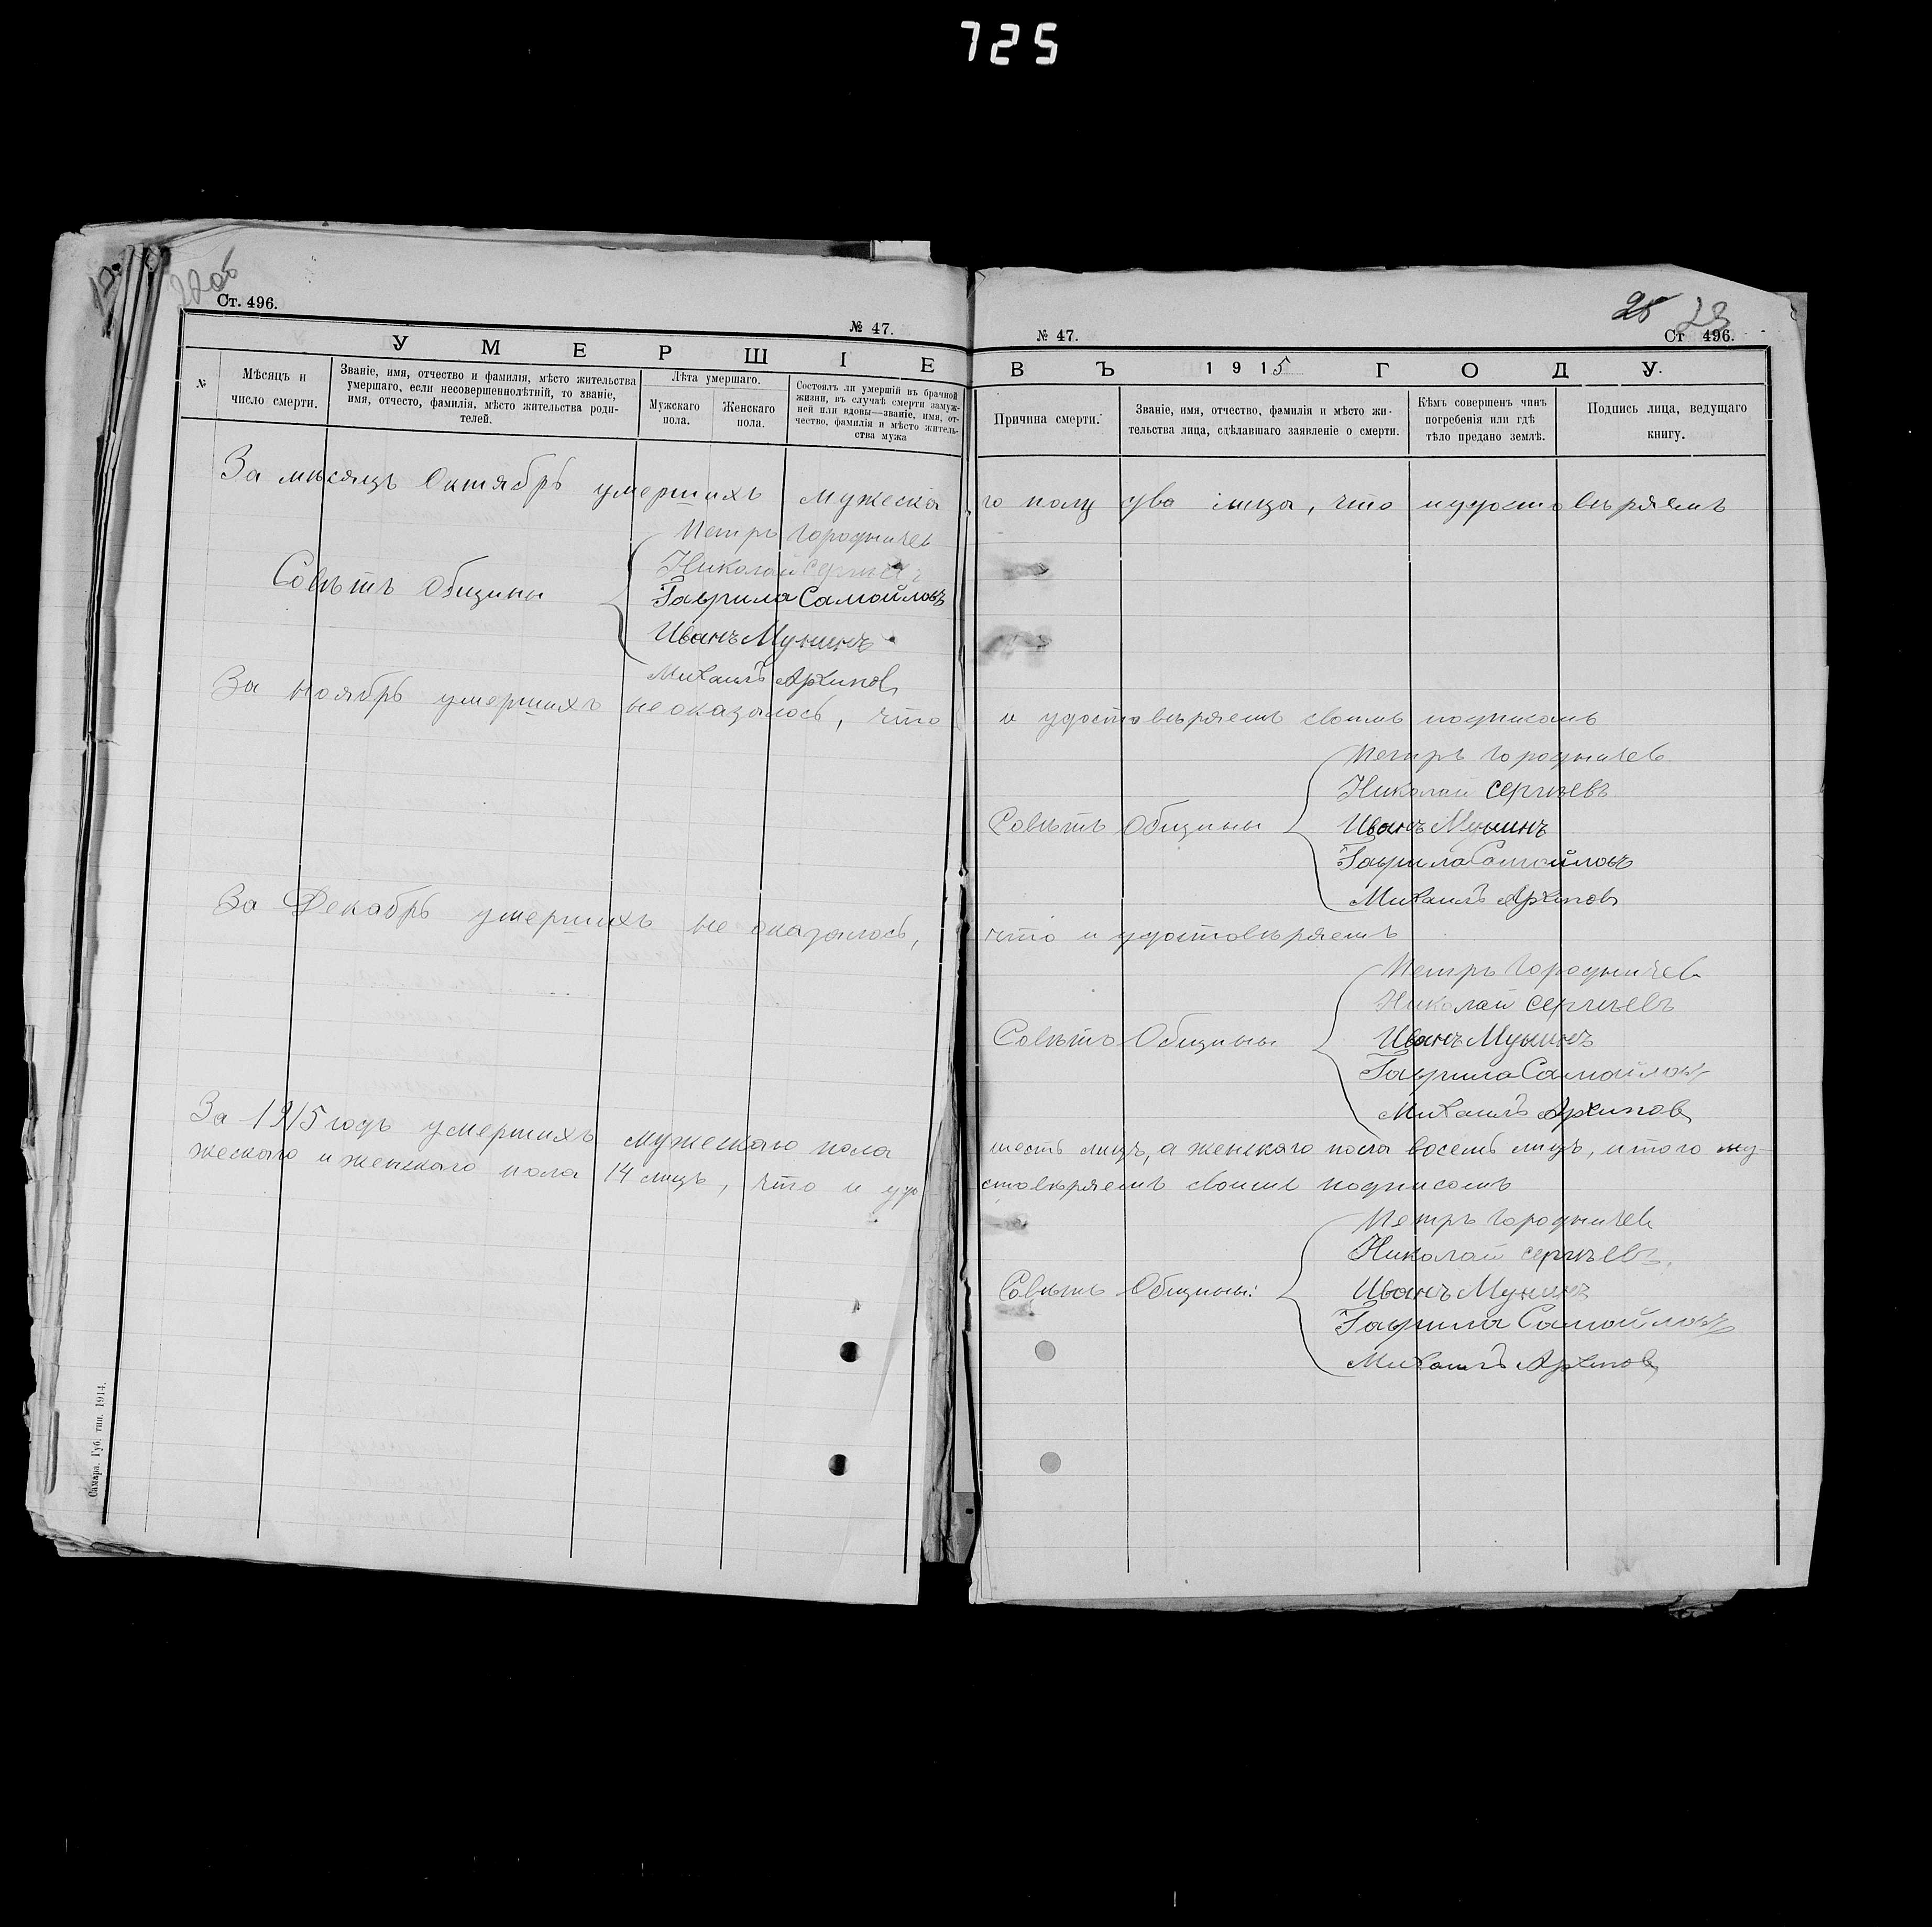 725
22об
Ст. 496.
№ 47.
УМЕРШІЕ
№
Мѣсяцъ и
число смерти.
Званіе, имя, отчество и фамилія, мѣсто жительства
умершаго, если несовершеннолѣтній, то званіе,
имя, отчесто, фамилія, мѣсто жительства роди-
телей.
Лѣта умершаго.
Мужскаго
пола.
Женскаго
пола.
Состоялъ ли умершій въ брачной
жизни, въ случаѣ смерти замуж-
ней или вдовы—званіе, имя, от-
чество, фамилія и мѣсто житель-
ства мужа
№ 47.
25 23
Ст 496.
ВЪ 1915 ГОДУ.
Причина смерти.
Званіе, имя, отчество, фамилія и мѣсто жи-
тельства лица, сдѣлавшаго заявленіе о смерти.
Кѣмъ совершенъ чинъ
погребенія или гдѣ
тѣло предано землѣ.
Подпись лица, ведущаго
книгу.
За мѣсяцъ Октябрь умершихъ мужеска го полу два лица, что и удостовѣряемъ
Петръ Городничев
Николай Сергѣевъ
Совѣтъ Общины
Гаврила Самойловъ
Иванъ Мунинъ
Михаилъ Архипов
За ноябрь умершихъ не оказалось, что и удостовѣряемъ своимъ подписомъ
Петръ Городничев
Николай Сергѣевъ
Совѣтъ Общины
Иванъ Мунинъ
Гаврила Самойловъ
Михаилъ Архипов
За Декабрь умершихъ не оказалось, что и удостовѣряемъ
Петръ Городничев
Николай Сергѣевъ
Совѣтъ Общины
Иванъ Мунинъ
Гаврила Самойловъ
Михаилъ Архипов
За 1915 годъ умершихъ мужескаго пола шесть лицъ, а женскаго пола восемь лицъ, итого му-
жескаго и женскаго пола 14 лицъ, что и удо стовѣряемъ своимъ подписомъ
Петръ Городничев
Николай Сергѣевъ
Совѣтъ Общины:
Иванъ Мунинъ
Гаврила Самойловъ
Михаилъ Архипов
Самара. Губ. тип. 1914.